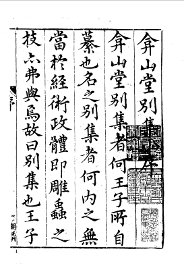 弇山堂別集序
弇山堂別集者何王子所自
纂也名之別集者何內之無
當於經術政體即雕蟲之
技亦弗與焉故曰別集也王子
序